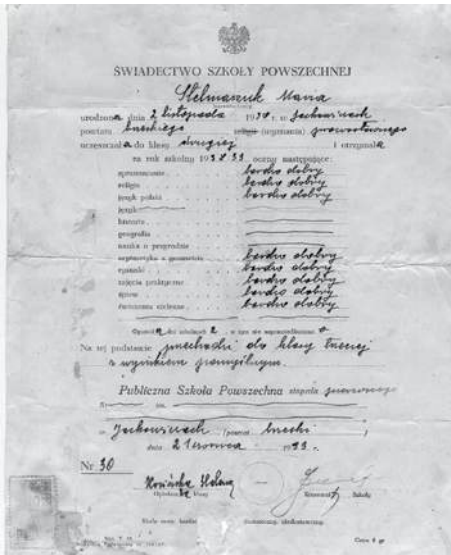 ŚWIADECTWO SZKOŁY POWSZECHNEJ
Stelmaszuk Maria
urodzona dnia 2 listopada 1930 r. w Jackowicach
powiatu łuckiego religii (wyznania) prawosławnego
uczęszczała do klasy drugiej i otrzymała
za rok szkolny 1938/39 oceny następujące:
sprawowanie bardzo dobry
religia bardzo dobry
język polski bardzo dobry
język
historia
geografia
nauka o przyrodzie
arytmetyka z geometrią bardzo dobry
rysunki bardzo dobry
zajęcia praktyczne bardzo dobry
śpiew bardzo dobry
ćwiczenia cielesne bardzo dobry
Opuściła dni szkolnych 2, w tym nie usprawiedliwiono 0
Na tej podstawie przechodzi do klasy trzeciej
z wynikiem pomyślnym.
Publiczna Szkoła Powszechna stopnia pierwszego
w Jackowicach (powiat łucki)
dnia 21 czerwca 1939.
Nr 30
Opiekun klasy Kierownik Szkoły
Cena 5 gr